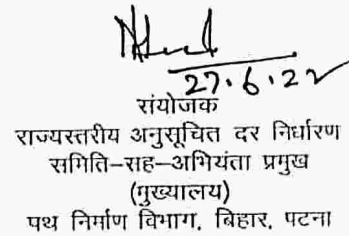 27.6.22
संयोजक
राज्यस्तरीय अनुसूचित दर निर्धारण
समिति-सह-अभियंता प्रमुख
(मुख्यालय)
पथ निर्माण विभाग, बिहार, पटना